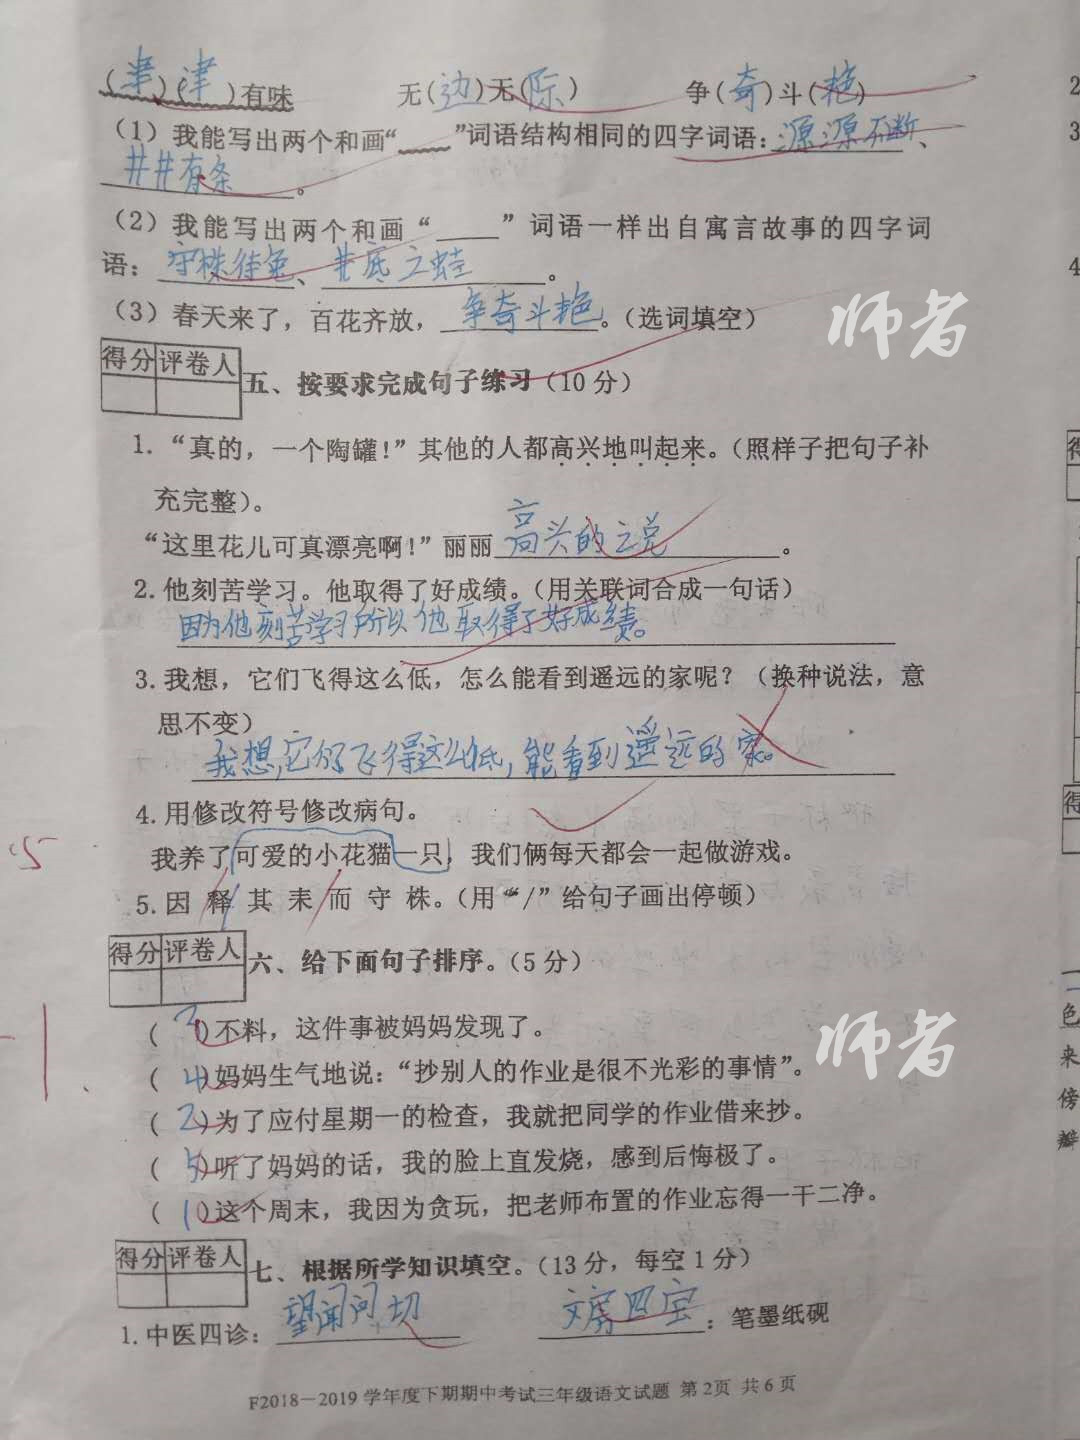 (津)(津)有味 无(边)无(际) 争(奇)斗(艳)
(1)我能写出两个和画“____”词语结构相同的四字词语:源源不断、
井井有条。
(2)我能写出两个和画“____”词语一样出自寓言故事的四字词
语:守株待兔、井底之蛙。
(3)春天来了,百花齐放,争奇斗艳。(选词填空)
得分 评卷人
五、按要求完成句子练习(10分)
1.“真的,一个陶罐!”其他的人都高兴地叫起来。(照样子把句子补
充完整)。
“这里花儿可真漂亮啊!”丽丽高兴的说。
2.他刻苦学习。他取得了好成绩。(用关联词合成一句话)
因为他刻苦学习所以他取得了好成绩。
3.我想,它们飞得这么低,怎么能看到遥远的家呢?(换种说法,意
思不变)
我想,它们飞得这么低,能看到遥远的家。
4.用修改符号修改病句。
我养了可爱的小花猫一只,我们俩每天都会一起做游戏。
5.因 释 其 耒 而 守 株。(用“/”给句子画出停顿)
得分 评卷人
六、给下面句子排序。(5分)
(3)不料,这件事被妈妈发现了。
(4)妈妈生气地说:“抄别人的作业是很不光彩的事情”。
(2)为了应付星期一的检查,我就把同学的作业借来抄。
(5)听了妈妈的话,我的脸上直发烧,感到后悔极了。
(1)这个周末,我因为贪玩,把老师布置的作业忘得一干二净。
得分 评卷人
七、根据所学知识填空。(13分,每空1分)
1.中医四诊:望闻问切 文房四宝:笔墨纸砚
F2018-2019学年度下期期中考试三年级语文试题 第2页 共6页
师者
师者
-1
2
3
4
得
得
色
来
傍
瓣